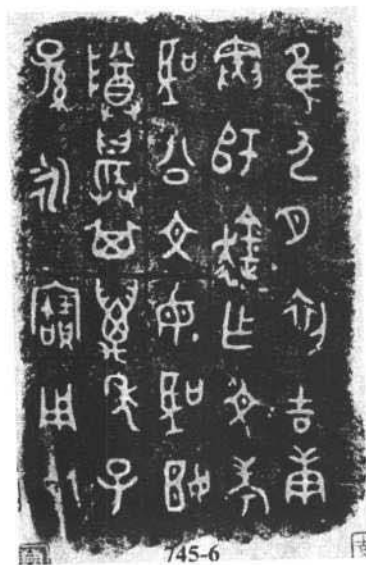 隹九月初吉庚
寅師趛乍文考
聖公文母聖姬
尊其萬年子
孫永寶用
745-6